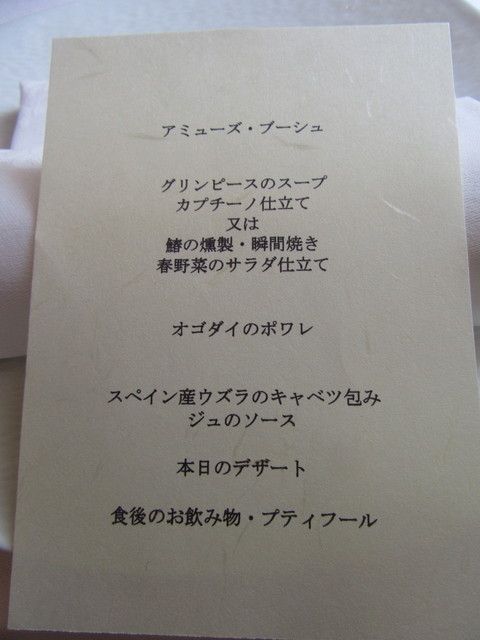 アミューズ・ブーシュ
グリンピースのスープ
カプチーノ仕立て
又は
鰆の燻製・瞬間焼き
春野菜のサラダ仕立て
オゴダイのポワレ
スペイン産ウズラのキャベツ包み
ジュのソース
本日のデザート
食後のお飲み物・プティフール